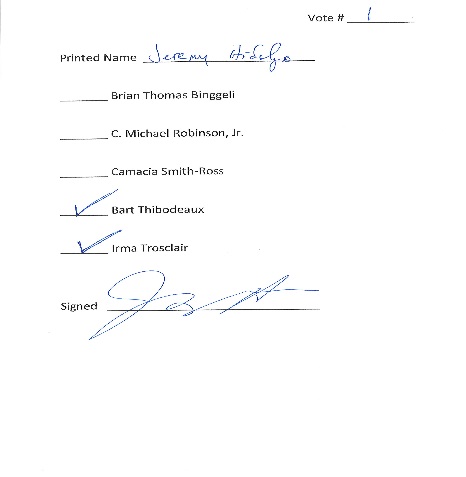 Vote # 1
Printed Name Jeremy Hidalgo
Brian Thomas Binggeli
C. Michael Robinson, Jr.
Camacia Smith-Ross
✓ Bart Thibodeaux
✓ Irma Trosclair
Signed